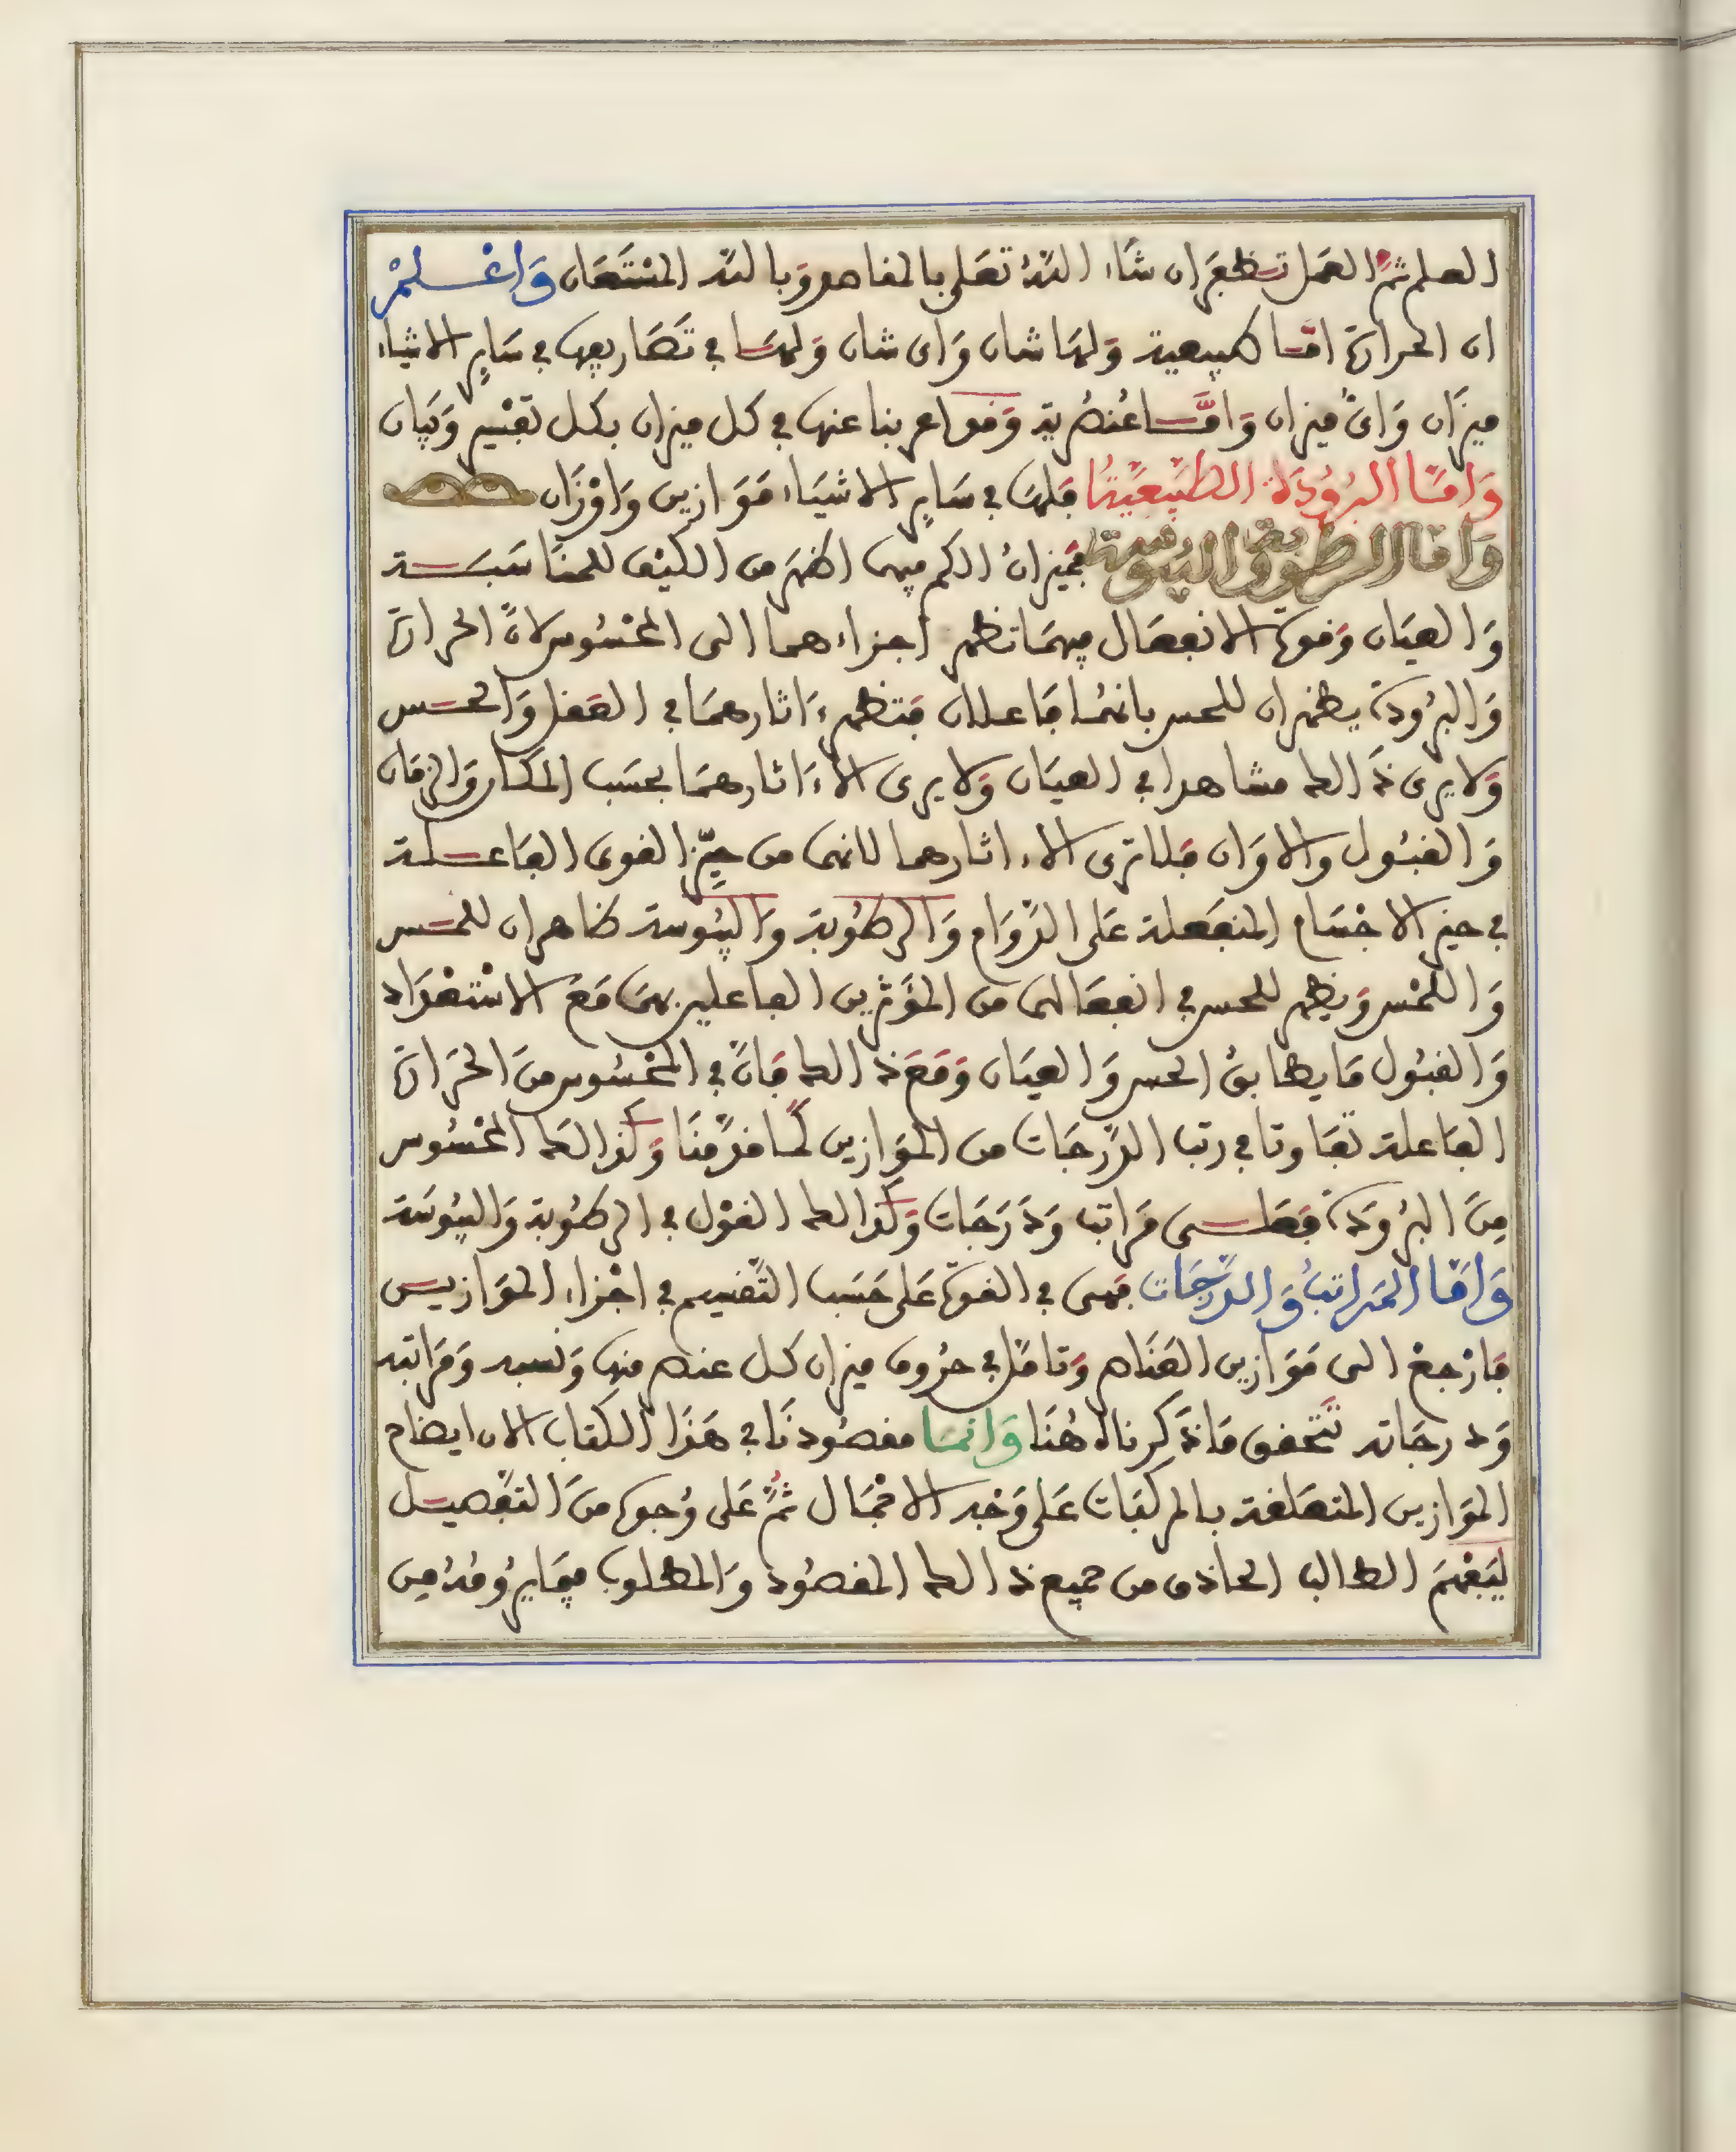 العلم ثمّ العمل تظفر ان شاء اللّه تعلى بالمقاصد وبالله المستعان وَاعْلمْ
ان الحرارة امّا طبيعية ولها شان وَاى شان وَلها في تصَاريفها في سَايرِ الاشياء
ميزَان وَاىّ ميزان وَامَّا عُنصُرية وَقد اعربنا عنها في كل ميزان بكل تقسيم وَبيان
وَامّا البرُودَة الطبيعيّة فلها في سَايرِ الاشيَاء مَوَازين وَاوْزَان
وَامّا الرطوبة واليبوسة فميزانُ الكم فيها اظهَر من الكيْف للمنَاسَبَة
وَالعيَان وَقوة الانفعَال فيهمَا تظهر اجزاءهما الى المحْسُوس لانّ الحرارة
وَالبرُودة يظهران للحس بانهُما فاعلان فتظهر ءَاثارهمَا في العَقل وَالحس
وَلا يرى ذَالك مشاهدا في العيَان وَلا يرى الا ءَاثارهمَا بحسَب المكان وَالزمَان
وَالقبُول والاوَان فلا ترى الا ءاثارهما لانهما من حيِّز القوى الفَاعلة
في حيز الاجْسَام المنفَعلة عَلى الدّوَام وَالرطُوبة وَاليبُوسة ظاهران للحس
وَاللمْس وَيظهر للحس في انفعَالهما من المؤَثّرين الفاعلين بهمَا مَعَ الاسْتعْدَاد
وَالقبُول مَا يطابقُ الحس وَالعيَان وَمَعَ ذَالك فَانّ في المحْسُوس منَ الحَرارة
الفاعلة تفَاوتا في رتب الدّرجَات من الموَازين كما قدّمنَا وَكذالك المحْسُوس
مِنَ البرُودَة فعَلى مَراتب وَدَرَجَات وَكذالك القوْل في الرطُوبة وَاليبُوسَة
وَامَّا المرَاتبُ وَالدّرجَات فهى في القوة عَلى حَسَب التّقسيم في اجْزاء الموَازين
فَارْجعْ الى مَوَازين العنَاصر وَتامّل في حرُوف ميزان كل عنصر منها وَنسبه وَمَراتبه
وَدرجَاته تَتحقق مَا ذَكرناهُ هُنَا وَانمَا مقصُودنَا في هَذَا الكتاب الان ايضاح
الموَازين المتعَلقة بالمركبَات عَلى وَجْه الاجْمَال ثمّ عَلى وُجوه منَ التفْصيل
ليَفْهَمَ الطالب الحاذق من جميع ذَالك المقصُود وَالمطلوب فيمَا يرُومُهُ مِن